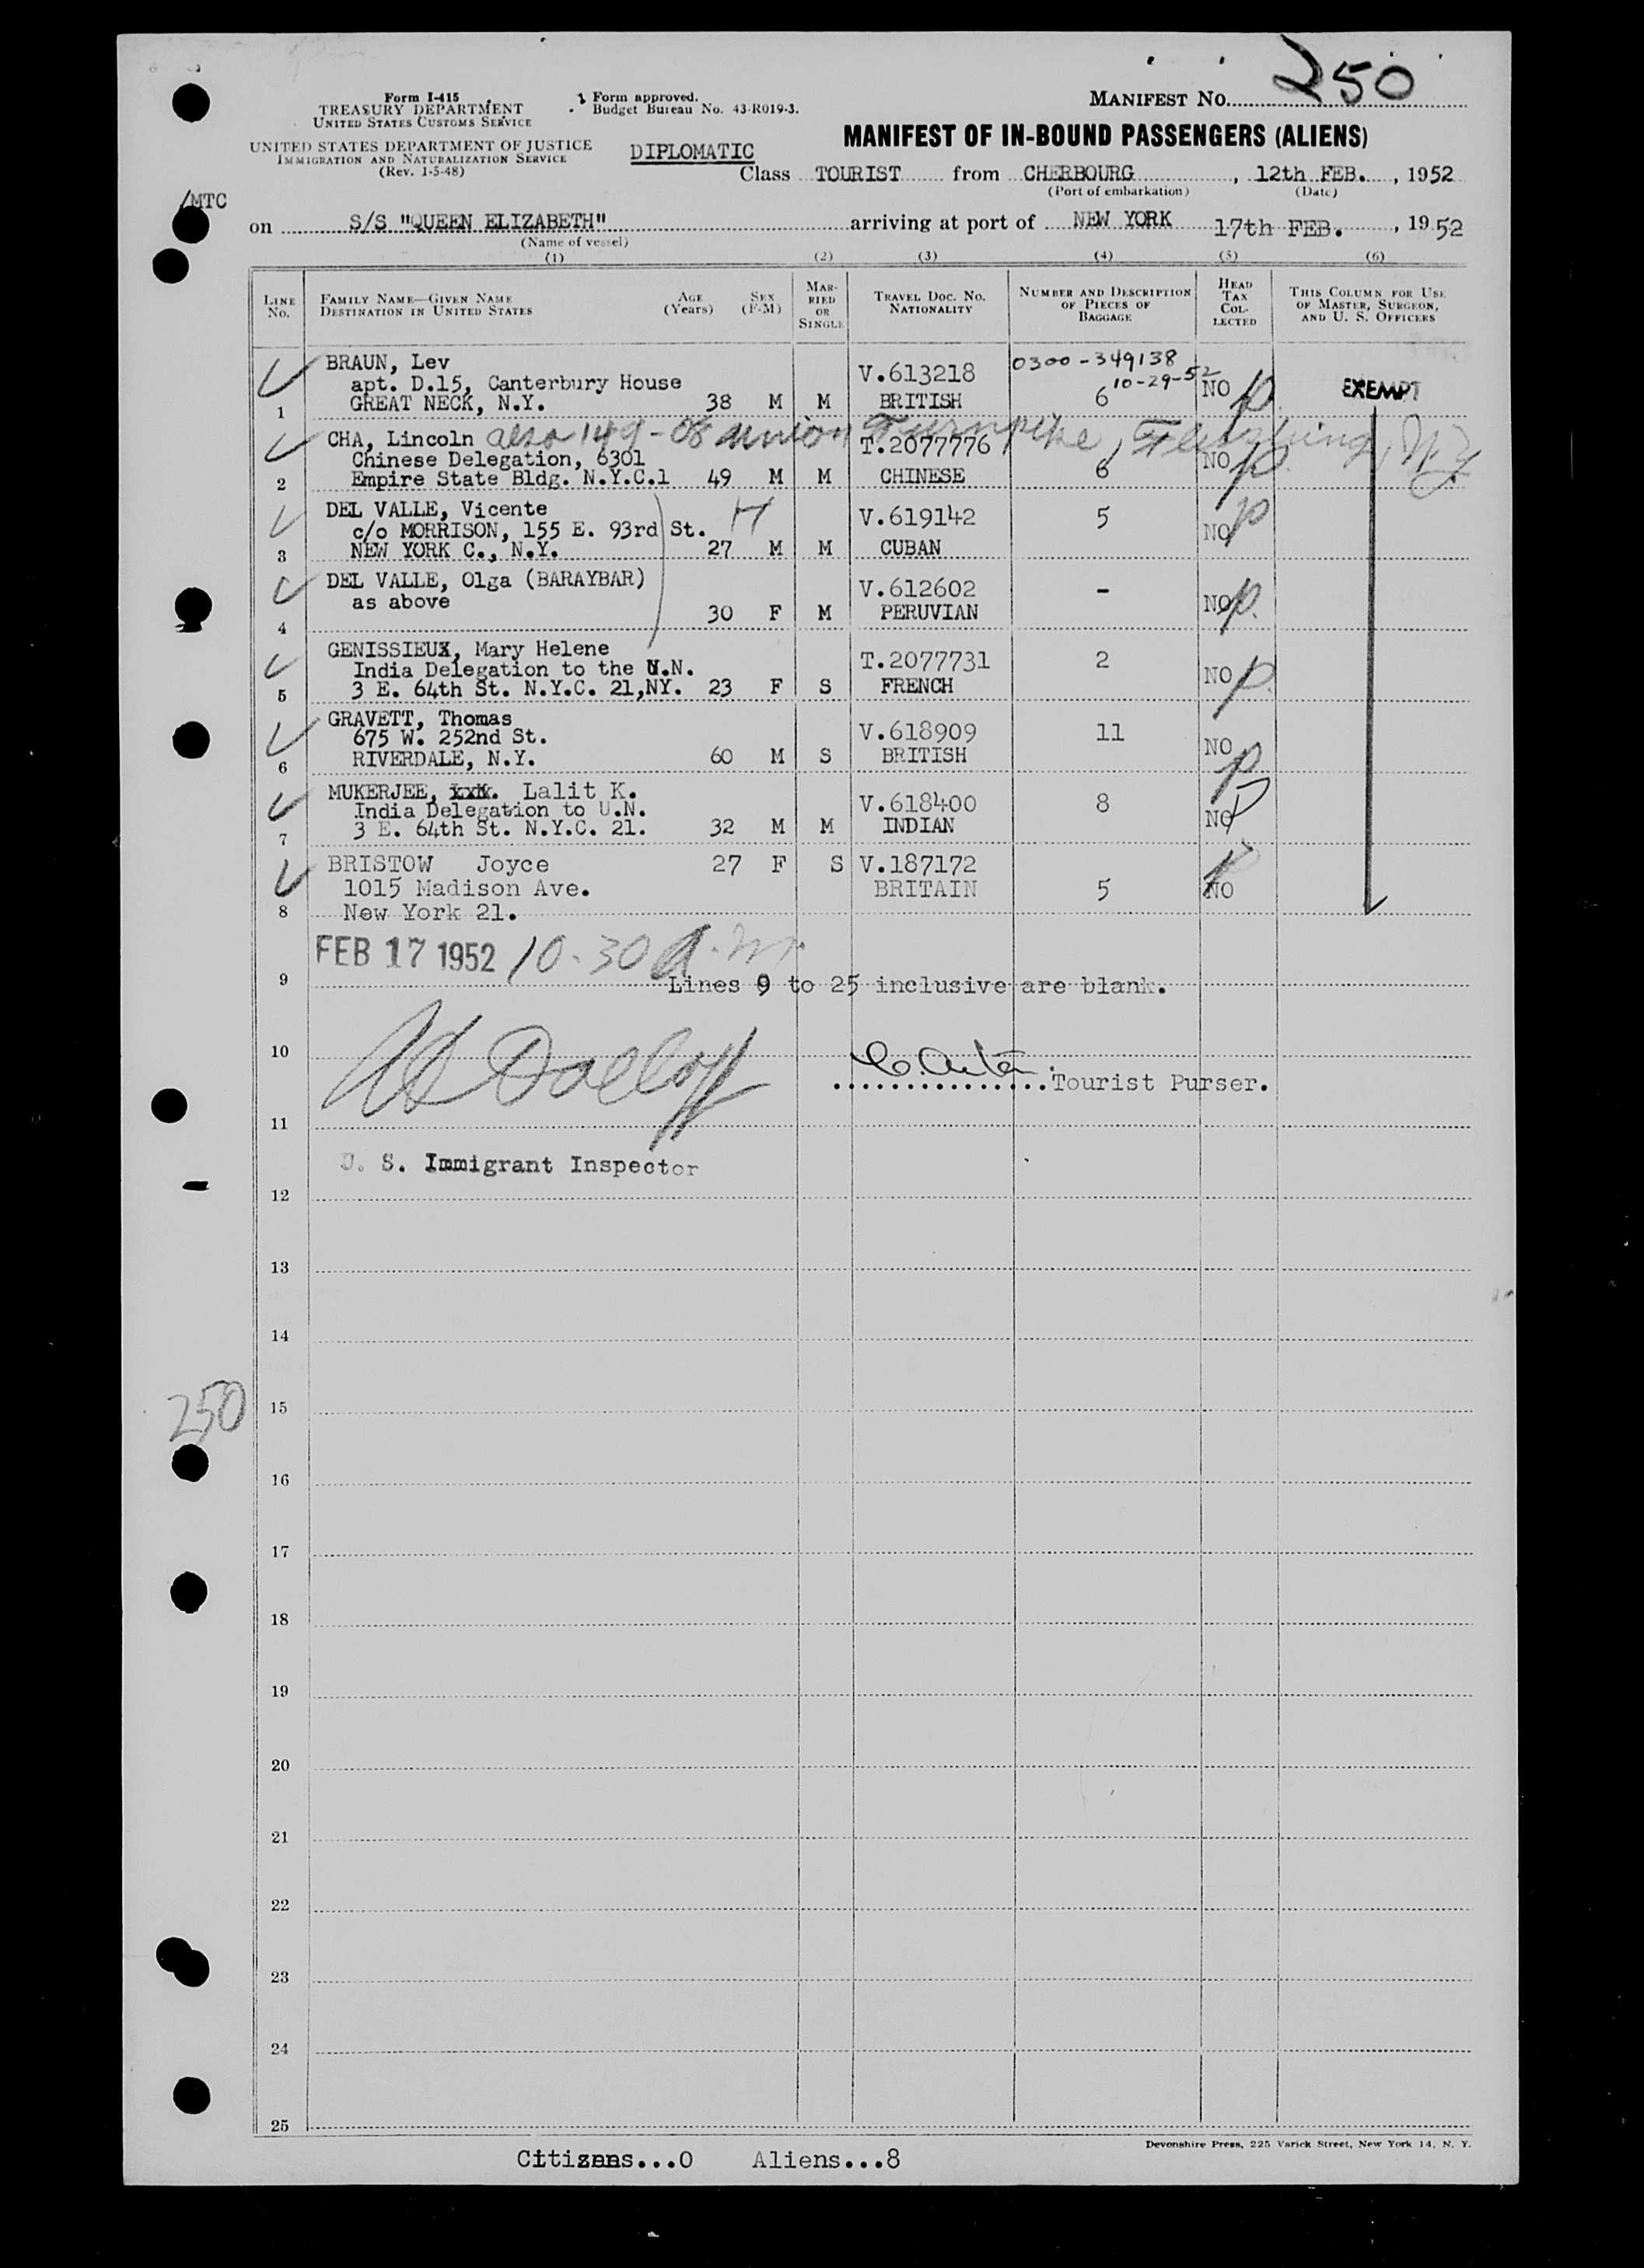 250
Form I-415
TREASURY DEPARTMENT
UNITED STATES CUSTOMS SERVICE
UNITED STATES DEPARTMENT OF JUSTICE
IMMIGRATION AND NATURALIZATION SERVICE
(Rev. 1-5-48)
Form approved.
Budget Bureau No. 43-R019-3.
MANIFEST NO.
MANIFEST OF IN-BOUND PASSENGERS (ALIENS)
DIPLOMATIC
Class TOURIST from CHERBOURG, 12th FEB., 1952
(Port of embarkation) (Date)
/MTC
on S/S "QUEEN ELIZABETH" arriving at port of NEW YORK 17th FEB., 1952
(Name of vessel)
(1) (2) (3) (4) (5) (6)
LINE NO.
FAMILY NAME—GIVEN NAME
DESTINATION IN UNITED STATES
AGE (Years)
SEX (F-M)
MARRIED OR SINGLE
TRAVEL DOC. NO.
NATIONALITY
NUMBER AND DESCRIPTION OF PIECES OF BAGGAGE
HEAD TAX COLLECTED
THIS COLUMN FOR USE OF MASTER, SURGEON, AND U. S. OFFICERS
BRAUN, Lev V.613218 0300-349138
apt. D.15, Canterbury House 10-29-52 NO p EXEMPT
1 GREAT NECK, N.Y. 38 M M BRITISH 6
CHA, Lincoln also 149-08 Union Turnpike, Flushing, N.Y.
T.2077776
Chinese Delegation, 6301 NO p.
2 Empire State Bldg. N.Y.C.1 49 M M CHINESE 6
DEL VALLE, Vicente H V.619142 5 p
c/o MORRISON, 155 E. 93rd St. NO
3 NEW YORK C., N.Y. 27 M M CUBAN
DEL VALLE, Olga (BARAYBAR) V.612602 -
as above NO p.
4 30 F M PERUVIAN
GENISSIEUX, Mary Helene T.2077731 2
India Delegation to the U.N. NO p.
5 3 E. 64th St. N.Y.C. 21,NY. 23 F S FRENCH
GRAVETT, Thomas V.618909 11
675 W. 252nd St. NO p
6 RIVERDALE, N.Y. 60 M S BRITISH
MUKERJEE, Lalit K. V.618400 8
India Delegation to U.N. NO p
7 3 E. 64th St. N.Y.C. 21. 32 M M INDIAN
BRISTOW Joyce 27 F S V.187172 p
1015 Madison Ave. BRITAIN 5 NO
8 New York 21.
FEB 17 1952 10.30 A.m.
9 Lines 9 to 25 inclusive are blank.
10
Tourist Purser.
11
U. S. Immigrant Inspector
12
13
14
250
15
16
17
18
19
20
21
22
23
24
25
Devonshire Press, 225 Varick Street, New York 14, N. Y.
Citizens...0 Aliens...8